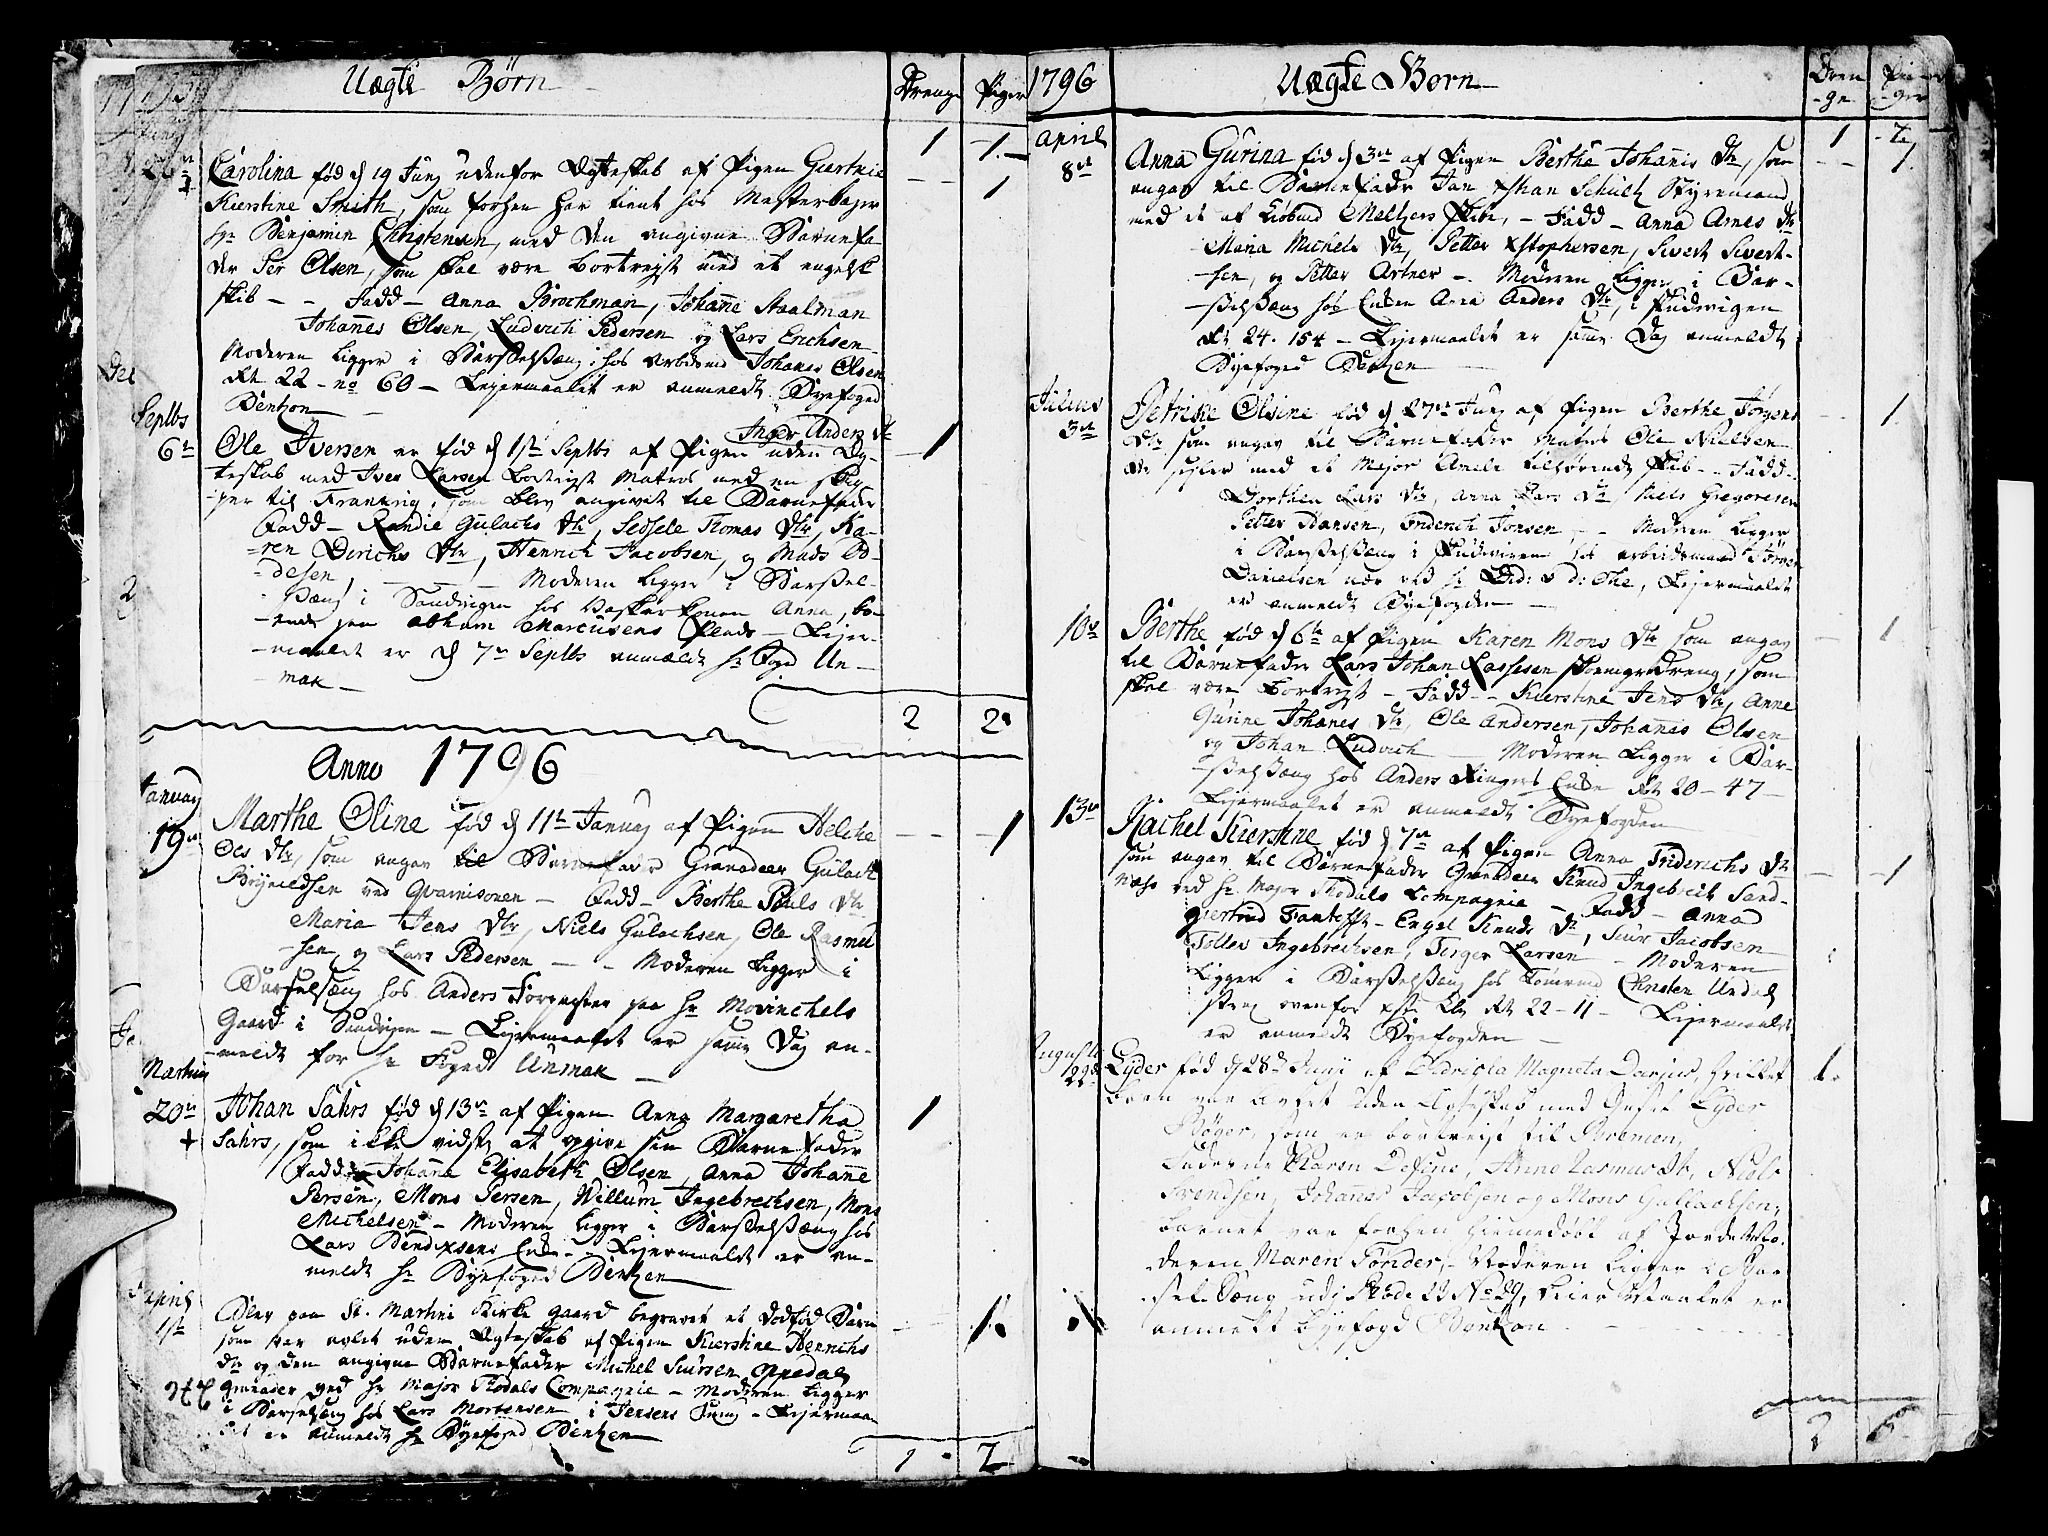 Uægte Børn
Drenge Piger
1 1
Carolina fød d 19 Junj udenfor Ægteskab af Pigen Giertrue
Kierstine Smith, som forhen har tient hos Mesterbager
hr Benjamin Christensen, med den angivne Barnefa
der Per Olsen, som skal være bortreyst med et engelsk
skib - - Fadd - Anna Brochman, Johanne Staalman
Johannes Olsen, Ludvich Pedersen og Lars Erichsen
Moderen ligger i Barselseng hos Arbdsmd Johanes Olsen
Rt 22 - no 60 - Lejermaalet er anmeldt Byefoged
Bentzon
Septb
6te Ole Iversen er fød d 1ste Septb af Pigen Inger Anders dtr uden Æg-
teskab med Iver Larsen bortreyst Matros med en skip
per til Frankrig, som blev angivet til Barnefader
Fadd - Randie Gulachs dtr, Sedsele Thomas dtr, Ka-
ren Dirichs dtr, Henrich Jacobsen, og Mads Od-
desen, - Moderen ligger i Barsel-
seng i Sandvigen hos Vaskerkonen Anna, bo-
ende paa Abham Marcusens Plads - Lejer-
maalet er d 7de Septb anmældt hr Foged Un-
mak
2 2
Anno 1796
Januarj
19de Marthe Oline fød d 11te Januarj af Pigen Helche
Ols dtr, som angav til Barnefader Granadeer Gulach
Brynildsen ved Gvarnisonen - Fadd - Berthe Pouls dtr
Maria Jens dtr, Niels Gulachsen, Ole Rasmu
sen og Lars Pedersen - - Moderen ligger i
Barselseng hos Anders paa hr Movinchels
Gaard i Sandvigen - Lejermaalet er samme Dag an-
meldt for hr Foged Unmak
Martius
20de Johan Sahrs fød d 13de af Pigen Anna Margaretha
Sahrs, som ikke vidste at opgive sin Barnefader
Fadd Johana Elisabeth Olsen, Anna Johanne
Persen, Mons Persen, Willum Ingebrechsen, Mons
Michelsen - Moderen ligger i Barselseng hos
Lars Bendixsens Enke - Lejermaalet er an-
meldt hr Byefoged Bentzen
April
1ste Blev paa St. Martini Kirke gaard begravet et dødfød Barn
som var avlet uden Ægteskab af Pigen Kierstine Henrichs
dtr og den angivne Barnefader Michel Siursen Oppedal
Grenader ved hr Major Flodals Compagnie - Moderen ligger
i Barselseng hos Lars Mortensen i Jensens - Lejermaa
let er anmeldt hr Byefoged Bentzen
1 2
1796 Uægte Børn
Dren-ge Pi-ger
1 2
April
8de Anna Gurina fød d 3de af Pigen Berthe Johanis dtr, som
angav til Barnefader Jan Schult Styremand
med et af Kiøbmd Meltzers skibe, - Fadd - Anna Arnes dtr
Maria Michels dtr, Petter xstophersen, Sivert Sivert-
sen, og Petter Artner - Moderen ligger i Bar-
selseng hos Enken Anna Anders dtr, i Skudevigen
Rt 24. 154 - Lejermaalet er samme Dag anmeldt
Byefoged Bentzen
Julius
3de Petrine Olsine fød d 27de Junj af Pigen Berthe Jørgens
dtr som angav til Barnefader Matros Ole Nielsen
der sejler med et Major Ameln tilhørende skib - Fadd -
Dorthea Lars dtr, Anna Lars dtr, Niels Gregoresen
Petter Hansen, Friderich Jonsen, - Moderen ligger
i Barselseng i Skudevigen hos Arbeidsmand Sørren
Danielsen, Lejermaalet
er anmeldt Byefogden
10de Berthe fød d 6te af Pigen Karen Mons dtr som angav
til Barnefader Lars Johan Lassesen skomagerdreng, som
skal være bortreyst - Fadd - Kierstine Jens dtr, Anne
Gurine Johanes dtr, Ole Andersen, Johanes Olsen
og Johan Ludvich Moderen ligger i Bar-
selseng hos Anders Ringers Enke Rt 20 - 47 -
Lejermaalet er anmeldt Byefogden
13de Rachel Kierstine fød d 7de af Pigen Anna Friderichs dtr
som angav til Barnefader Grenadeer Knud Ingebrect Sand-
næse ved hr Major Flodals Compagnie - Fadd - Anna
giertrud Fantofft - Engel Knuds dtr, Siur Jacobsen
Tollev Ingebrechsen, Terger Larsen - Moderen
ligger i Barselseng hos Tømrmd Christen Undal
strax ovenfor xste Kb Rt 22 - 11 - Lejermaalet
er anmeldt Byefogden
Augustii
22de Lyder fød d 28de Junii af Fidriola Magneta Darjus, hvilket
barn var avlet uden Ægteskab med Gesel Lyder
Bøger, som er bortreist til Bremen,
Fadderne Karen, Anne Rasmus D., Niels
Svendsen, Johannes Jacobsen og Mons Gullachsen,
barnet var forhen hiemmedøbt af Jordemo-
deren Maren Tønder, - Moderen ligger i Bar
sel Seng udi Rode 23 No 29, Leiermaalet er
anmelt Byefogd Bentzon